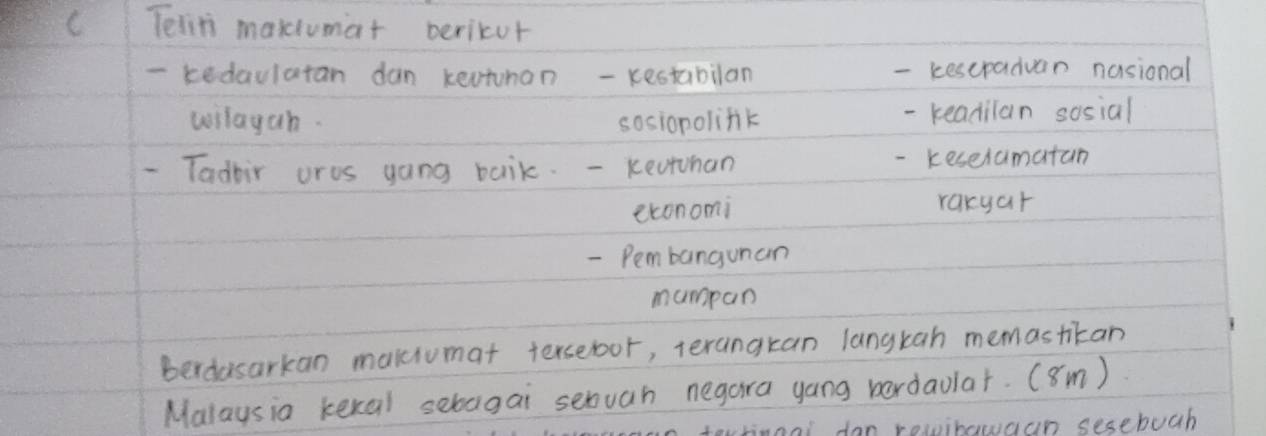 C Teliti maklumat berikut
- kedaulatan dan keutuhan - kestabilan - kesepaduan nasional
wilayah. sosiopolitik - keadilan sosial
- Tadbir urus yang baik. - keutuhan - keselamatan
ekonomi rakyat
- Pembangunan
mampan
Berdasarkan maklumat tersebut, terangkan langkah memastikan
Malaysia kekal sebagai sebuah negara yang berdaulat. (8m).
tertinggi dan kewibawaan sesebuah